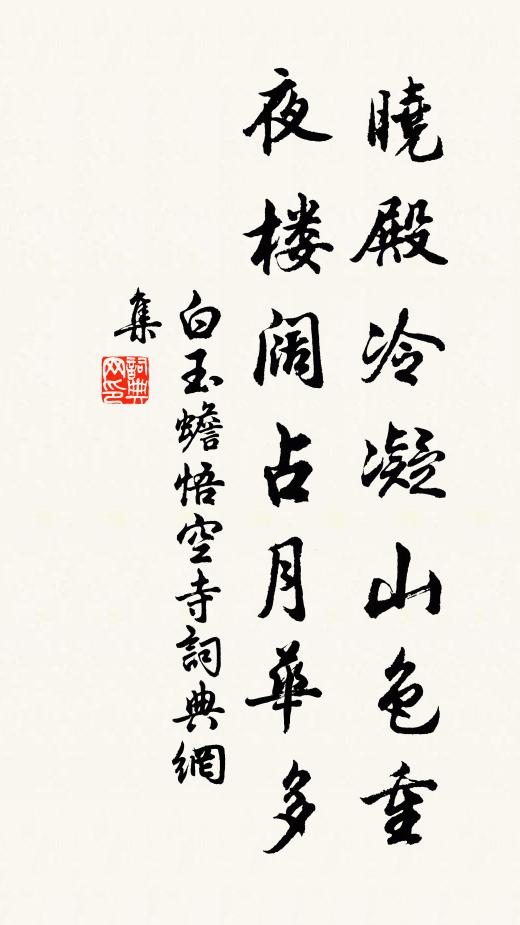 曉殿冷凝山色重
夜楼阔占月華多
白玉蟾悟空寺詞典網
集
詞典
网印